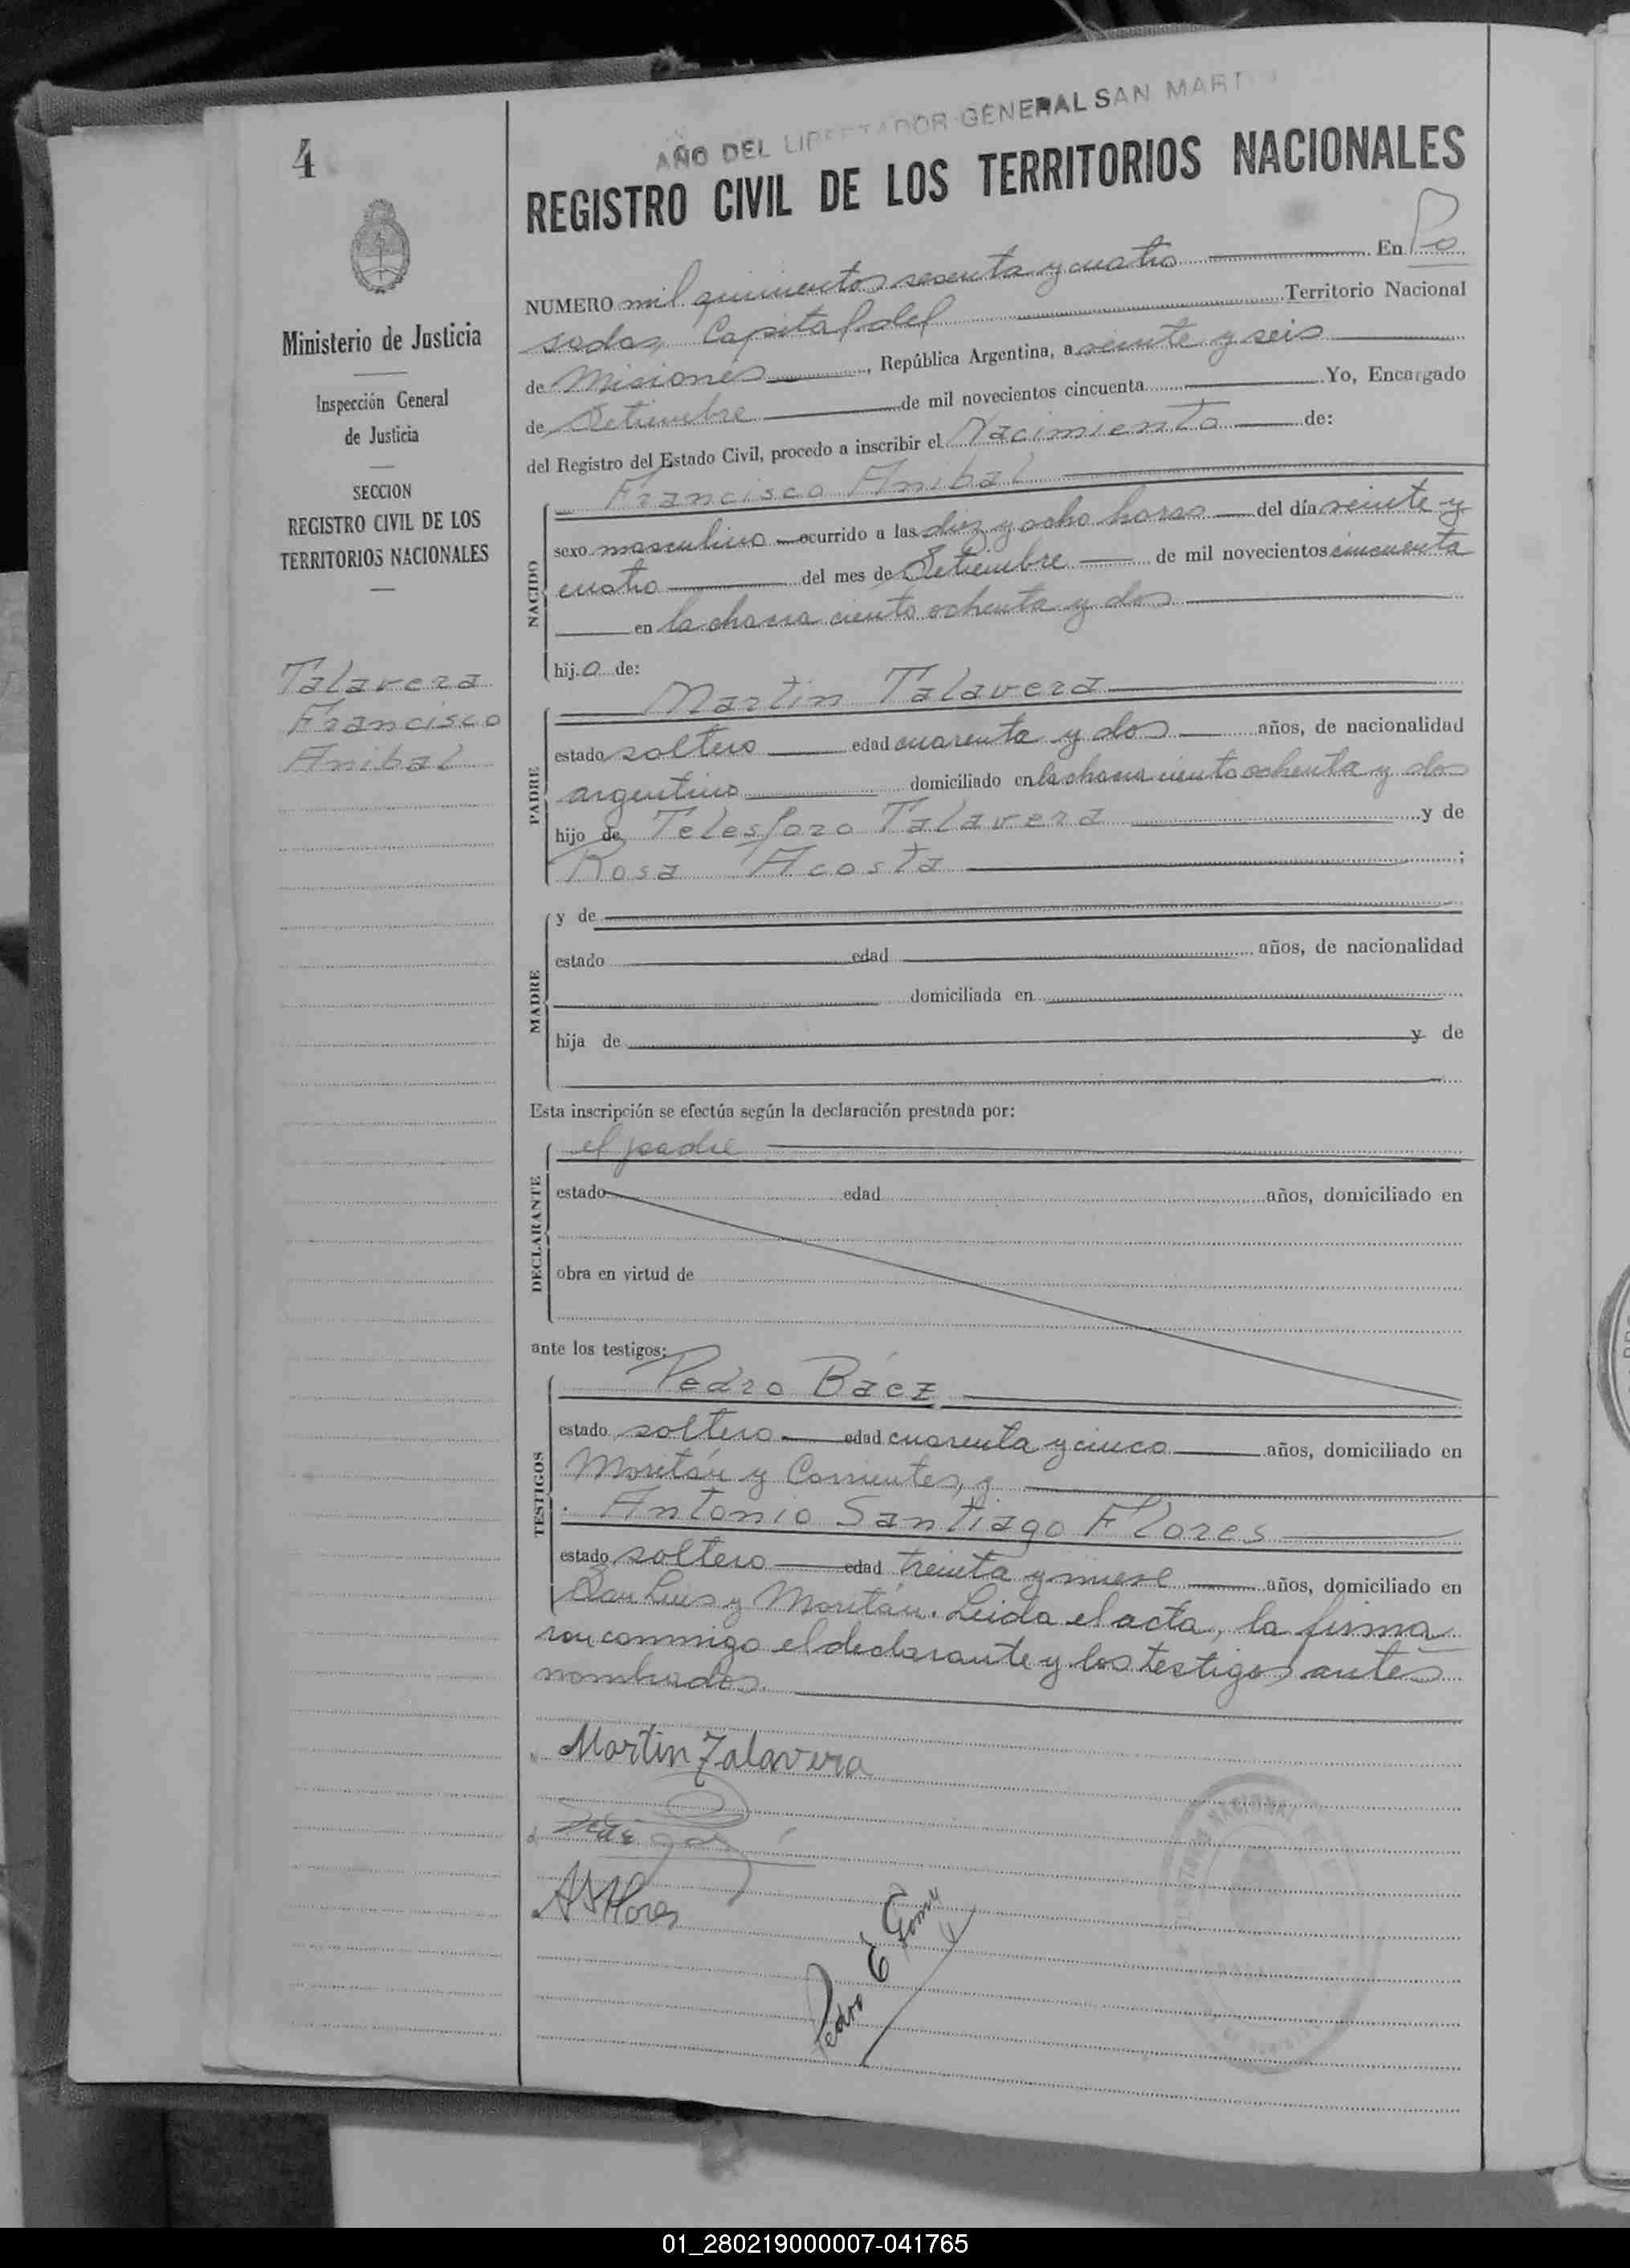 AÑO DEL LIBERTADOR GENERAL SAN MARTIN
4
REGISTRO CIVIL DE LOS TERRITORIOS NACIONALES
Ministerio de Justicia
Inspección General
de Justicia
SECCION
REGISTRO CIVIL DE LOS
TERRITORIOS NACIONALES
Talavera
Francisco
Anibal
NUMERO mil quinientos sesenta y cuatro En Po
sadas, Capital del Territorio Nacional
de Misiones, República Argentina, a veinte y seis
de Setiembre de mil novecientos cincuenta Yo, Encargado
del Registro del Estado Civil, procedo a inscribir el Nacimiento de:
NACIDO
Francisco Anibal
sexo masculino ocurrido a las diez y ocho horas del día veinte y
cuatro del mes de Setiembre de mil novecientos cincuenta
en la chacra ciento ochenta y dos
hijo de:
PADRE
Martin Talavera
estado soltero edad cuarenta y dos años, de nacionalidad
argentino domiciliado en la chacra ciento ochenta y dos
hijo de Telesforo Talavera y de
Rosa Acosta ;
MADRE
y de
estado edad años, de nacionalidad
domiciliada en
hija de y de
Esta inscripción se efectúa según la declaración prestada por:
DECLARANTE
el padre
estado edad años, domiciliado en
obra en virtud de
ante los testigos:
TESTIGOS
Pedro Báez
estado soltero edad cuarenta y cinco años, domiciliado en
Moritán y Corrientes, y
Antonio Santiago Flores
estado soltero edad treinta y nueve años, domiciliado en
San Luis y Moritán. Leida el acta, la firma
ron conmigo el declarante y los testigos antes
nombrados.
Martin Talavera
A S Flores
Pedro E Gomez
01_280219000007-041765